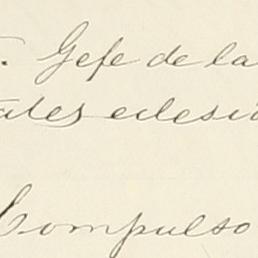 . Gefe de la
ales eclesi
Compulso